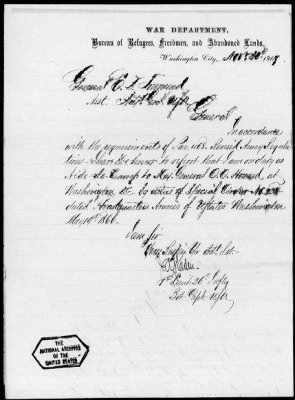 WAR DEPARTMENT,
Bureau of Refugees, Freedmen, and Abandoned Lands,
Washington City, Nov 30th 1867
General E. D. Townsend
Asst. Adjt. Genl. U.S.A.
General
In accordance
with the requirements of Par. Revised Army Regula
tions I have the honor to report that I am on duty as
Aide-de-Camp to Maj. General O. O. Howard, at
Washington D.C. by virtue of Special Orders No.
dated Headquarters Armies of U States Washington
May 19th 1866.
I am Sir
Very Respfy Your Obt. Svt.
1st Lieut 26th Infty
Bvt Capt. U.S.A.
THE
NATIONAL ARCHIVES
OF THE
UNITED STATES